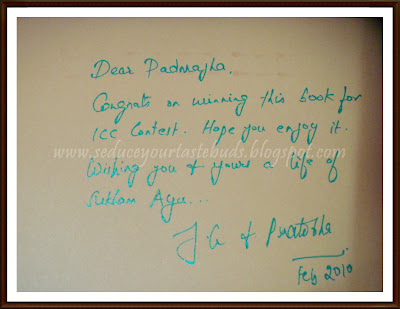 Dear Padmajha,
Congrats on winning this book for
ICC Contest. Hope you enjoy it.
www.seduceyourtastebuds.blogspot.com
Wishing you & yours a life of
Sukham Ayu...
J.G & Pratibha
Feb 2010